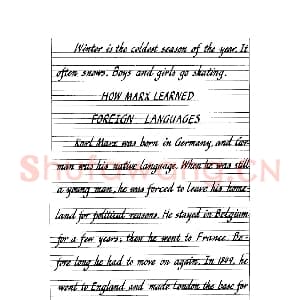 Winter is the coldest season of the year. It
often snows. Boys and girls go skating.
HOW MARX LEARNED
FOREIGN LANGUAGES
Karl Marx was born in Germany, and Ger-
man was his native language. When he was still
a young man, he was forced to leave his home-
land for political reasons. He stayed in Belgium
for a few years; then he went to France. Be-
fore long he had to move on again. In 1849, he
went to England and made London the base for